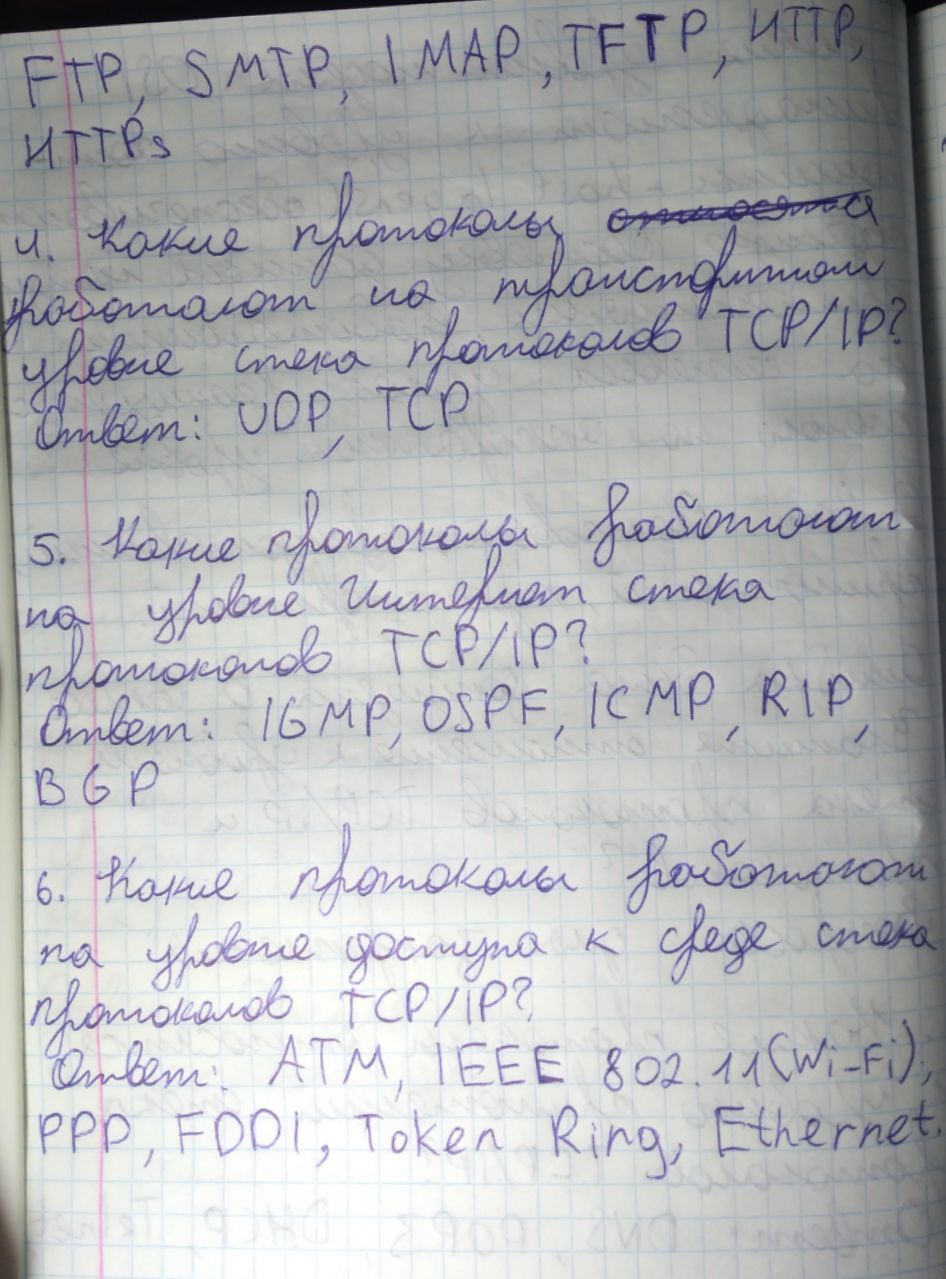 FTP, SMTP, IMAP, TFTP, HTTP,
HTTPs
4. Какие протоколы относятся
работают на транспортном
уровне стека протоколов TCP/IP?
Ответ: UDP, TCP
5. Какие протоколы работают
на уровне Интернет стека
протоколов TCP/IP?
Ответ: IGMP, OSPF, ICMP, RIP,
BGP
6. Какие протоколы работают
на уровне доступа к среде стека
протоколов TCP/IP?
Ответ: ATM, IEEE 802.11(Wi-Fi),
PPP, FDDI, Token Ring, Ethernet.